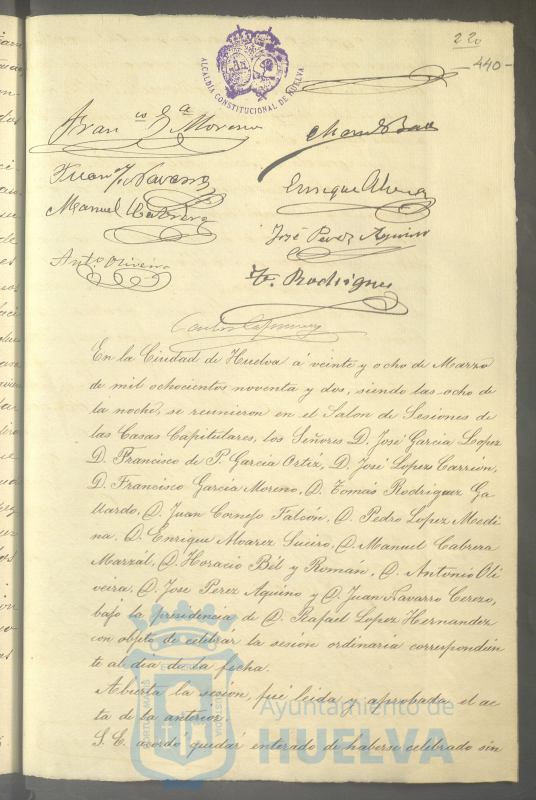 22o
-440-
ALCALDÍA CONSTITUCIONAL DE HUELVA
Franco Ga Moreno
Juan Navarro
Enrique Alvarez
Manuel Cabrera
José Perez Aquino
Anto Oliveira
T. Rodriguez
En la Ciudad de Huelva á veinte y ocho de Marzo
de mil ochocientos noventa y dos, siendo las ocho de
la noche, se reunieron en el Salon de Sesiones de
las Casas Capitulares, los Señores D. José Garcia Lopez
D. Francisco de P. Garcia Ortiz, D. José Lopez Carrión,
D. Francisco Garcia Moreno, D. Tomás Rodriguez Ga
llardo, D. Juan Cornejo Falcón, D. Pedro Lopez Medi
na, D. Enrique Alvarez Sueiro, D. Manuel Cabrera
Marzál, D. Horacio Bél y Román, D. Antonio Oli
veira, D. José Perez Aquino y D. Juan Navarro Cerezo,
bajo la presidencia de D. Rafael Lopez Hernandez
con objeto de celebrar la sesión ordinaria correspondien
te al dia de la fecha.
Abierta la sesión, fué leida y aprobada el ac
ta de la anterior.
S. E. acordó quedar enterado de haberse celebrado sin
Ayuntamiento de
HUELVA